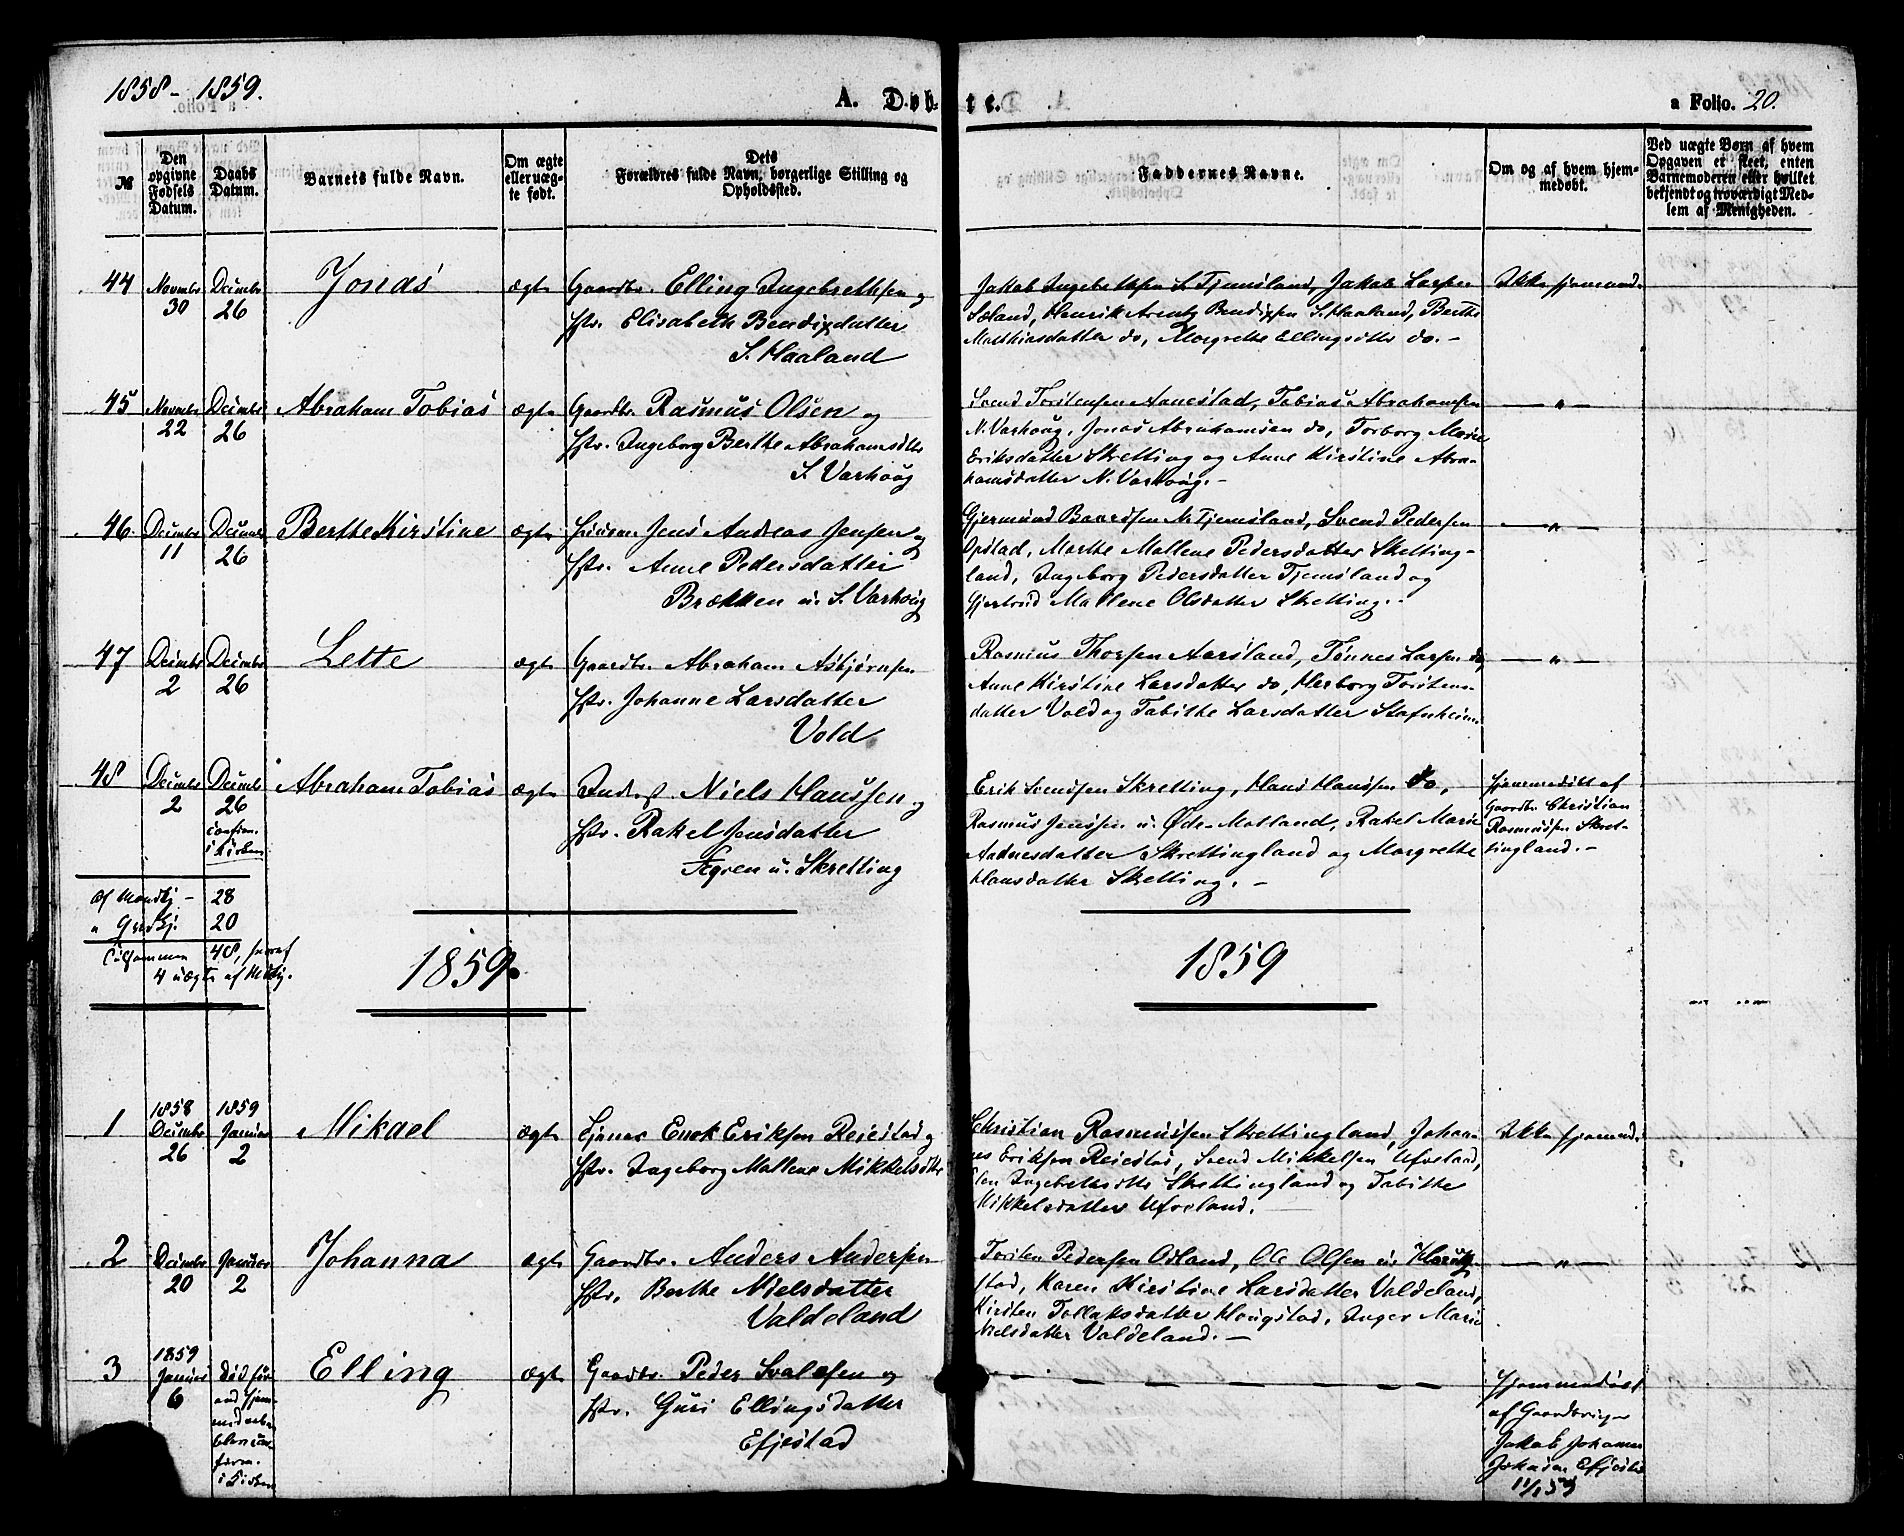 1858-1859.
A. Døbte.
a Folio. 20.
№
Den opgivne Fødsels Datum.
Daabs Datum.
Barnets fulde Navn.
Om ægte eller uægte født.
Dets
Forældres fulde Navn, borgerlige Stilling og
Opholdssted.
Faddernes Navne.
Om og af hvem hjemmedøbt.
Ved uægte Børn af hvem
Opgaven er skeet, enten
Barnemoderen eller hvilket
bekjendt og troværdigt Medlem af Menigheden.
44 Novembr 30 Decembr 26 Jonas ægte
Gaardbr. Elling Ingebrethsen og
Hstr. Elisabeth Bendixdatter
S. Haaland
Jakob Ingebrethsen S. Tjemsland, Jakob Larsen
Søland, Henrik Arentz Bendixen S. Haaland, Berthe
Matthiasdatter do, Margrethe Ellingsdttr do. -
Ikke hjemmed.
45 Novembr 22 Decembr 26 Abraham Tobias ægte
Gaardbr. Rasmus Olsen og
Hstr. Ingeborg Berthe Abrahamsdttr
S. Varhoug
Svend Torstensen Aanestad, Tobias Abrahamsen
N. Varhoug, Jonas Abrahamsen do, Torborg Marie
Eriksdatter Skretting og Anne Kirstine Abra-
hamsdatter N. Varhoug. -
— " —
46. Decembr 11 Decembr 26 Berthe Kirstine ægte
Jens Andreas Jensen og
Hstr. Anne Pedersdatter
Brækken u. S. Varhoug
Gjermund Baardsen N. Tjemsland, Svend Pedersen
Opstad, Marthe Mallene Pedersdatter Skretting-
land, Ingeborg Pedersdatter Tjemsland og
Gjertrud Mallene Olsdatter Skretting. -
— " —
47 Decembr 2 Decembr 26 Lette ægte
Gaardbr. Abraham Asbjørnsen
Hstr. Johanne Larsdatter
Vold
Rasmus Thorsen Aarsland, Tønnes Larsen do,
Anne Kirstine Larsdatter do, Herborg Torstens-
datter Vold og Tabithe Larsdatter Stafnheim
— " —
48 Decembr 2 Decembr 26 confirm. i Kirken Abraham Tobias ægte
Inderst. Niels Hanssen og
Hstr. Rakel Jensdatter
u. Skretting
Erik Svendsen Skretting, Hans Hanssen do,
Rasmus Jenssen u. Øde-Motland, Rakel Marie
Aadnesdatter Skrettingland og Margrethe
Hansdatter Skretting. -
Hjemmedøbt af
Gaardbr. Christian
Rasmussen Skret-
tingland. -
Af Mandkj - 28
" Qvindkj. 20
Tilsammen 48, hvoraf
4 uægte af Mdkj.
1859.
1859
1 1858 Decembr 26 1859 Januar 2 Mikael ægte
Enok Eriksen Reiestad og
Hstr. Ingeborg Mallene Mikkelsdttr
Christian Rasmussen Skrettingland, Johan-
nes Eriksen Reiestad, Svend Mikkelsen Ufseland,
Elen Ingebrethsdttr Skrettingland og Tabithe
Mikkelsdatter Ufseland.
Ikke hjemmed.
2 Decembr 20 Januar 2 Johanna ægte
Gaardbr. Anders Andersen
Hstr. Berthe Nielsdatter
Valdeland
Torsten Pedersen Odland, Ole Olsen u. Haug-
stad, Karen Kirstine Larsdatter Valdeland,
Kirsten Tollaksdatter Hougstad, Inger Marie
Nielsdatter Valdeland. -
— " —
3 1859 Januar 6 Død før
end Hjem-
medaaben
blev con-
firm.
i Kirken
Elling ægte
Gaardbr. Peder Svalesen og
Hstr. Guri Ellingsdatter
Efjestad
Hjemmedøbt
af Gaardbruger
Jakob Johannes
Efjestad